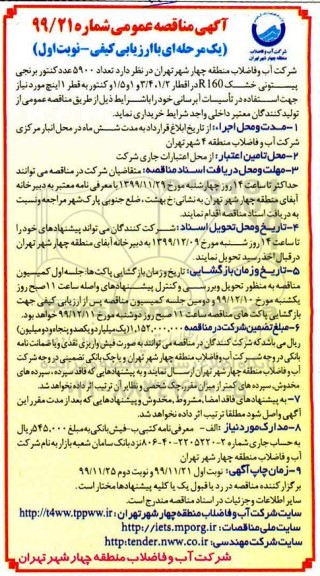 آگهی مناقصه عمومی شماره ۹۹/۲۱
(یک مرحله‌ای با ارزیابی کیفی - نوبت اول)
شرکت آب و فاضلاب
منطقه چهار شهر تهران
شرکت آب و فاضلاب منطقه چهار شهر تهران در نظر دارد تعداد ۵۹۰۰ عدد کنتور برنجی
پیستونی خشک R160 در اقطار ۳/۴،۱/۲ و ۱،۱/۵ و کنتور به قطر ۱ اینچ مورد نیاز
جهت استفاده در تأسیسات آبرسانی خود را با شرایط ذیل از طریق مناقصه عمومی از
تولیدکنندگان معتبر داخلی واجد شرایط خریداری نماید.
۱-مدت و محل اجرا: از تاریخ ابلاغ قرارداد به مدت شش ماه در محل انبار مرکزی
شرکت آب و فاضلاب منطقه ۴ شهر تهران
۲-محل تامین اعتبار: از محل اعتبارات جاری شرکت
۳-مهلت و محل دریافت اسناد مناقصه: متقاضیان شرکت در مناقصه می توانند
حداکثر تا ساعت ۱۴ روز چهارشنبه مورخ ۱۳۹۹/۱۱/۲۹ با معرفی نامه معتبر به دبیرخانه
آبفای منطقه چهار شهر تهران به نشانی: خ بهشت، ضلع جنوبی پارک شهر مراجعه و نسبت
به دریافت اسناد مناقصه اقدام نمایند.
۴-تاریخ و محل تحویل اسناد: شرکت کنندگان می تواند پیشنهادهای خود را
تا ساعت ۱۴ روز شنبه مورخ ۱۳۹۹/۱۲/۰۹ به دبیرخانه آبفای منطقه چهار شهر تهران
در قبال اخذ رسید تحویل نمایند.
۵-تاریخ و زمان بازگشایی: تاریخ و زمان بازگشایی پاکت ها: جلسه اول کمیسیون
مناقصه به منظور تحویل و بررسی و کنترل پیشنهادهای واصله ساعت ۱۱ صبح روز
یکشنبه مورخ ۱۳۹۹/۱۲/۱۰ و دومین جلسه کمیسیون مناقصه پس از ارزیابی کیفی جهت
بازگشایی پاکت های مناقصه ساعت ۱۱ صبح روز دوشنبه مورخ ۱۳۹۹/۱۲/۱۱ خواهد بود.
۶-مبلغ تضمین شرکت در مناقصه ۱,۱۵۲,۰۰۰,۰۰۰(یک میلیارد و یکصد و پنجاه و دو میلیون)
ریال می باشد که شرکت کنندگان در مناقصه می توانند به صورت فیش واریزی نقدی و یا ضمانت نامه
بانکی در وجه شرکت آب و فاضلاب منطقه چهار شهر تهران و یا چک بانکی تضمینی در وجه شرکت
آب و فاضلاب منطقه چهار شهر تهران ارسال نمایند و به پیشنهادهایی که فاقد سپرده، سپرده های
مخدوش، سپرده های کمتر از میزان مقرر، چک شخصی و نظایر آن ترتیب اثر داده نخواهد شد.
۷-به پیشنهادهای فاقد امضا، مشروط، مخدوش و پیشنهادهایی که بعد از مدت مقرر این
آگهی واصل شود مطلقا ترتیب اثر داده نخواهد شد.
۸-مدارک مورد نیاز: الف- معرفی نامه کتبی ب-فیش بانکی به مبلغ ۵۴۵,۰۰۰ ریال
به حساب جاری شماره ۲-۲۲۰۵۲۲۰-۴۰-۸۰۶ نزد بانک سامان شعبه بازار به نام شرکت
آب و فاضلاب منطقه چهار شهر تهران.
۹-زمان چاپ آگهی: نوبت اول ۹۹/۱۱/۲۱ و نوبت دوم ۹۹/۱۱/۲۵
برگزار کننده مناقصه در رد یا قبول یک یا کلیه پیشنهادها مختار است.
سایر اطلاعات و جزئیات در اسناد مناقصه مندرج است.
سایت شرکت آب و فاضلاب منطقه چهار شهر تهران: http://t4ww.tppww.ir
سایت ملی مناقصات: http://iets.mporg.ir
سایت شرکت مهندسی: http:tender.nww.co.ir
شرکت آب و فاضلاب منطقه چهار شهر تهران